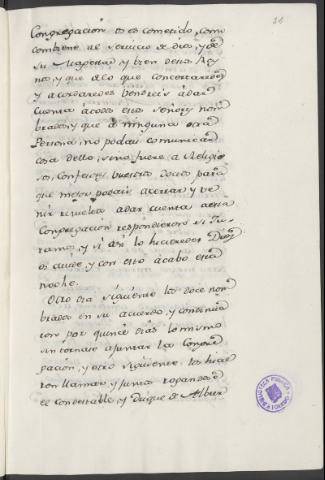 21
Congregacion os es cometido, como
combiene al servicio de dios, y de
su Magestad y bien deste Rey
no, y que de lo que concertaredes
y acordaredes bendreis a dar
cuenta a todos estos señores nom
brados, y que a ninguna otra
Persona, no podais comunicar
cosa dello, sino fuere a Religio
sos, Confesores, vuestros doctos para
que mejor podais acertar y ve
nir resueltos a dar cuenta a esta
Congregacion respondieron si Ju
ramos, y si asi lo hicieredes Dios
os ayude, y con esto acabo esta
noche.
Otro dia siguiente los doce nom
brados en su acuerdo, y continua
ron por quince dias lo mismo
sin tornar a juntar la Congre
gacion, y otro siguiente los hicie
ron llamar, y juntos rogando
el Condestable, y Duque de Albur
BIBLIOTECA PUBLICA
TOLEDO